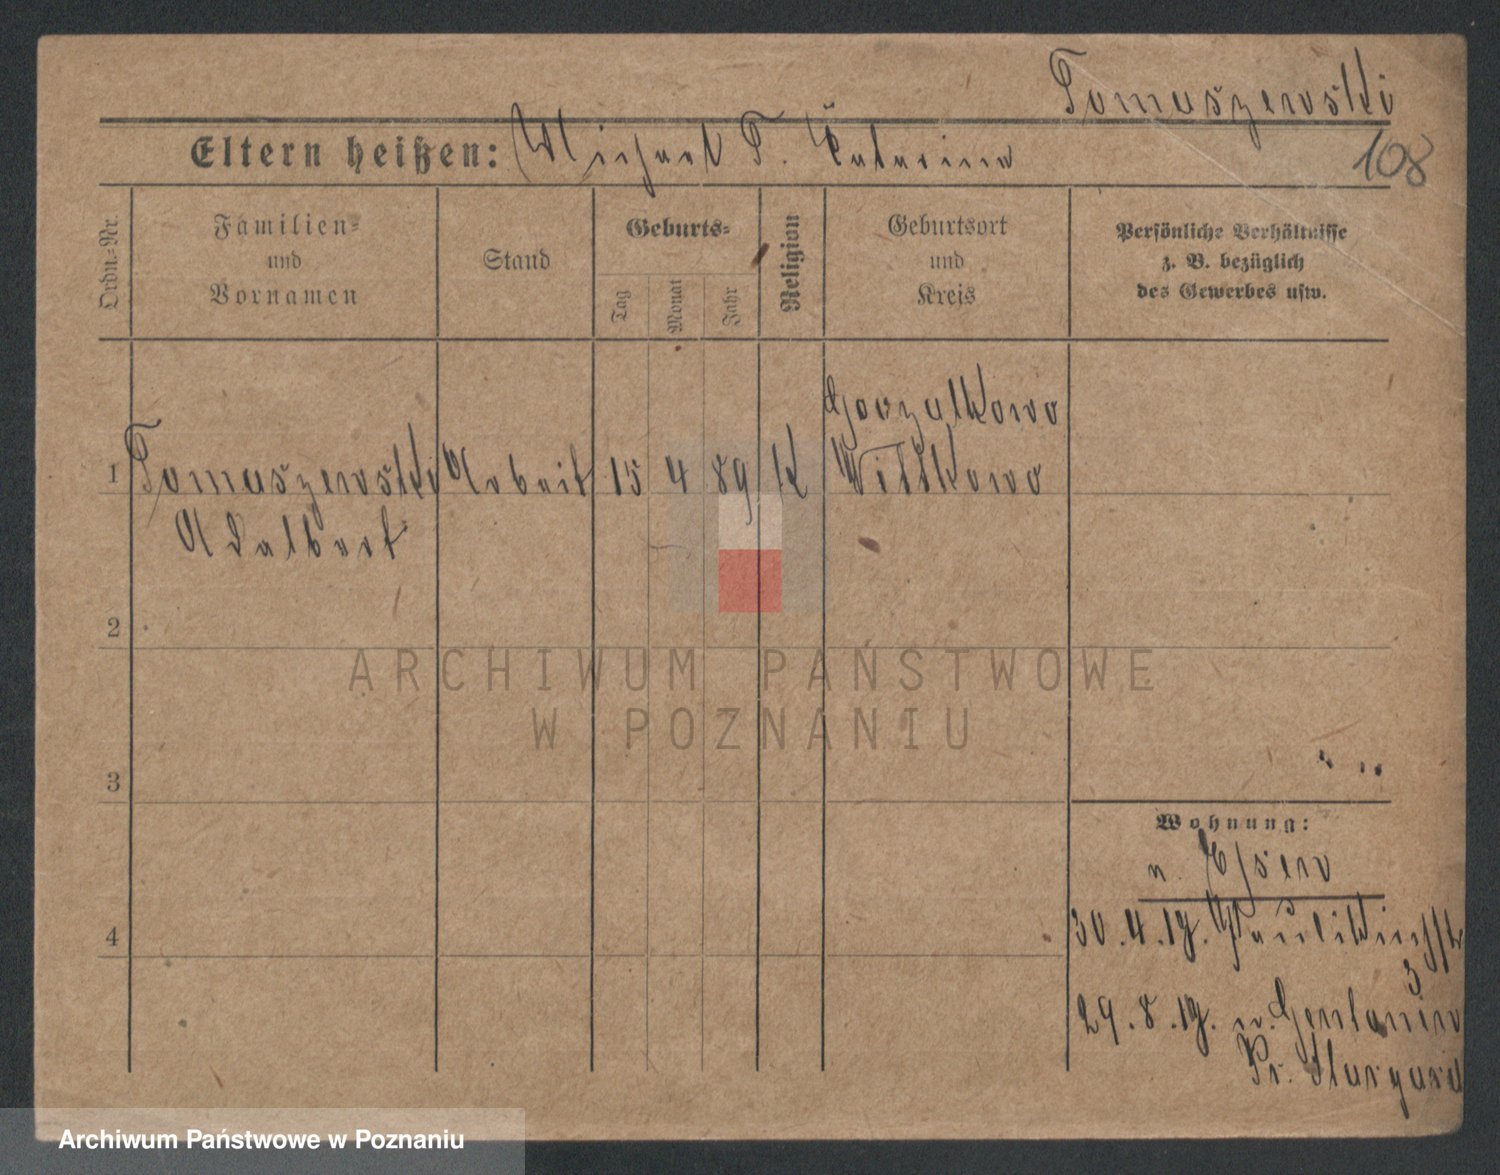 Tomaszewski
Eltern heißen: Michael T. Catarina
108
Ordn.-Nr.
Familien-
und
Vornamen
Stand
Geburts-
Tag
Monat
Jahr
Religion
Geburtsort
und
Kreis
Persönliche Verhältnisse
z. B. bezüglich
des Gewerbes usw.
Gorzalkowo
1 Tomaszewski Arbeit 15 4 89 K Wittkowo
Adalbert
2
ARCHIWUM PAŃSTWOWE
W POZNANIU
3
Wohnung:
v. Essen
4
30.4.19. Paulikirchstr
3
29.8.19. n.
Pr. Stargard
Archiwum Państwowe w Poznaniu